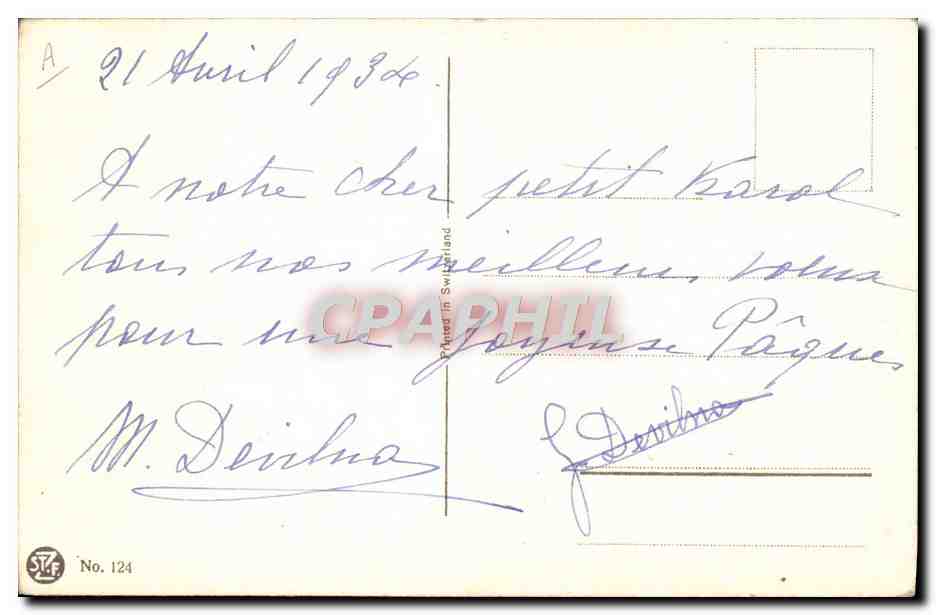 A
21 Avril 1934.
A notre cher petit Karol
tous nos meilleurs voeux
pour une Joyeuse Pâques
M. Devilna
G. Devilna
Printed in Switzerland
CPAPHIL
STZF.
No. 124